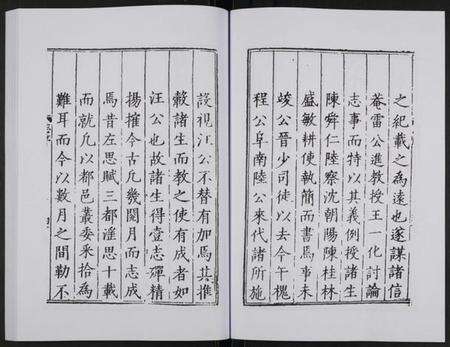 之紀載之為遠也遂謀諸信
菴雷公進教授王一化討論
志事而特以其義例授諸生
陳舜仁陸察沈朝陽陳桂林
盛敏耕使執簡而書焉事未
峻公晉少司徒以去今午槐
程公阜南陸公來代諸所施
設視汪公不替有加焉其推
轂諸生而教之使有成者如
汪公也故諸生得壹志殫精
揚搉今古凡幾閱月而志成
焉昔左思賦三都淫思十載
而就凡以都邑叢委釆拾為
難耳而今以數月之間勒不